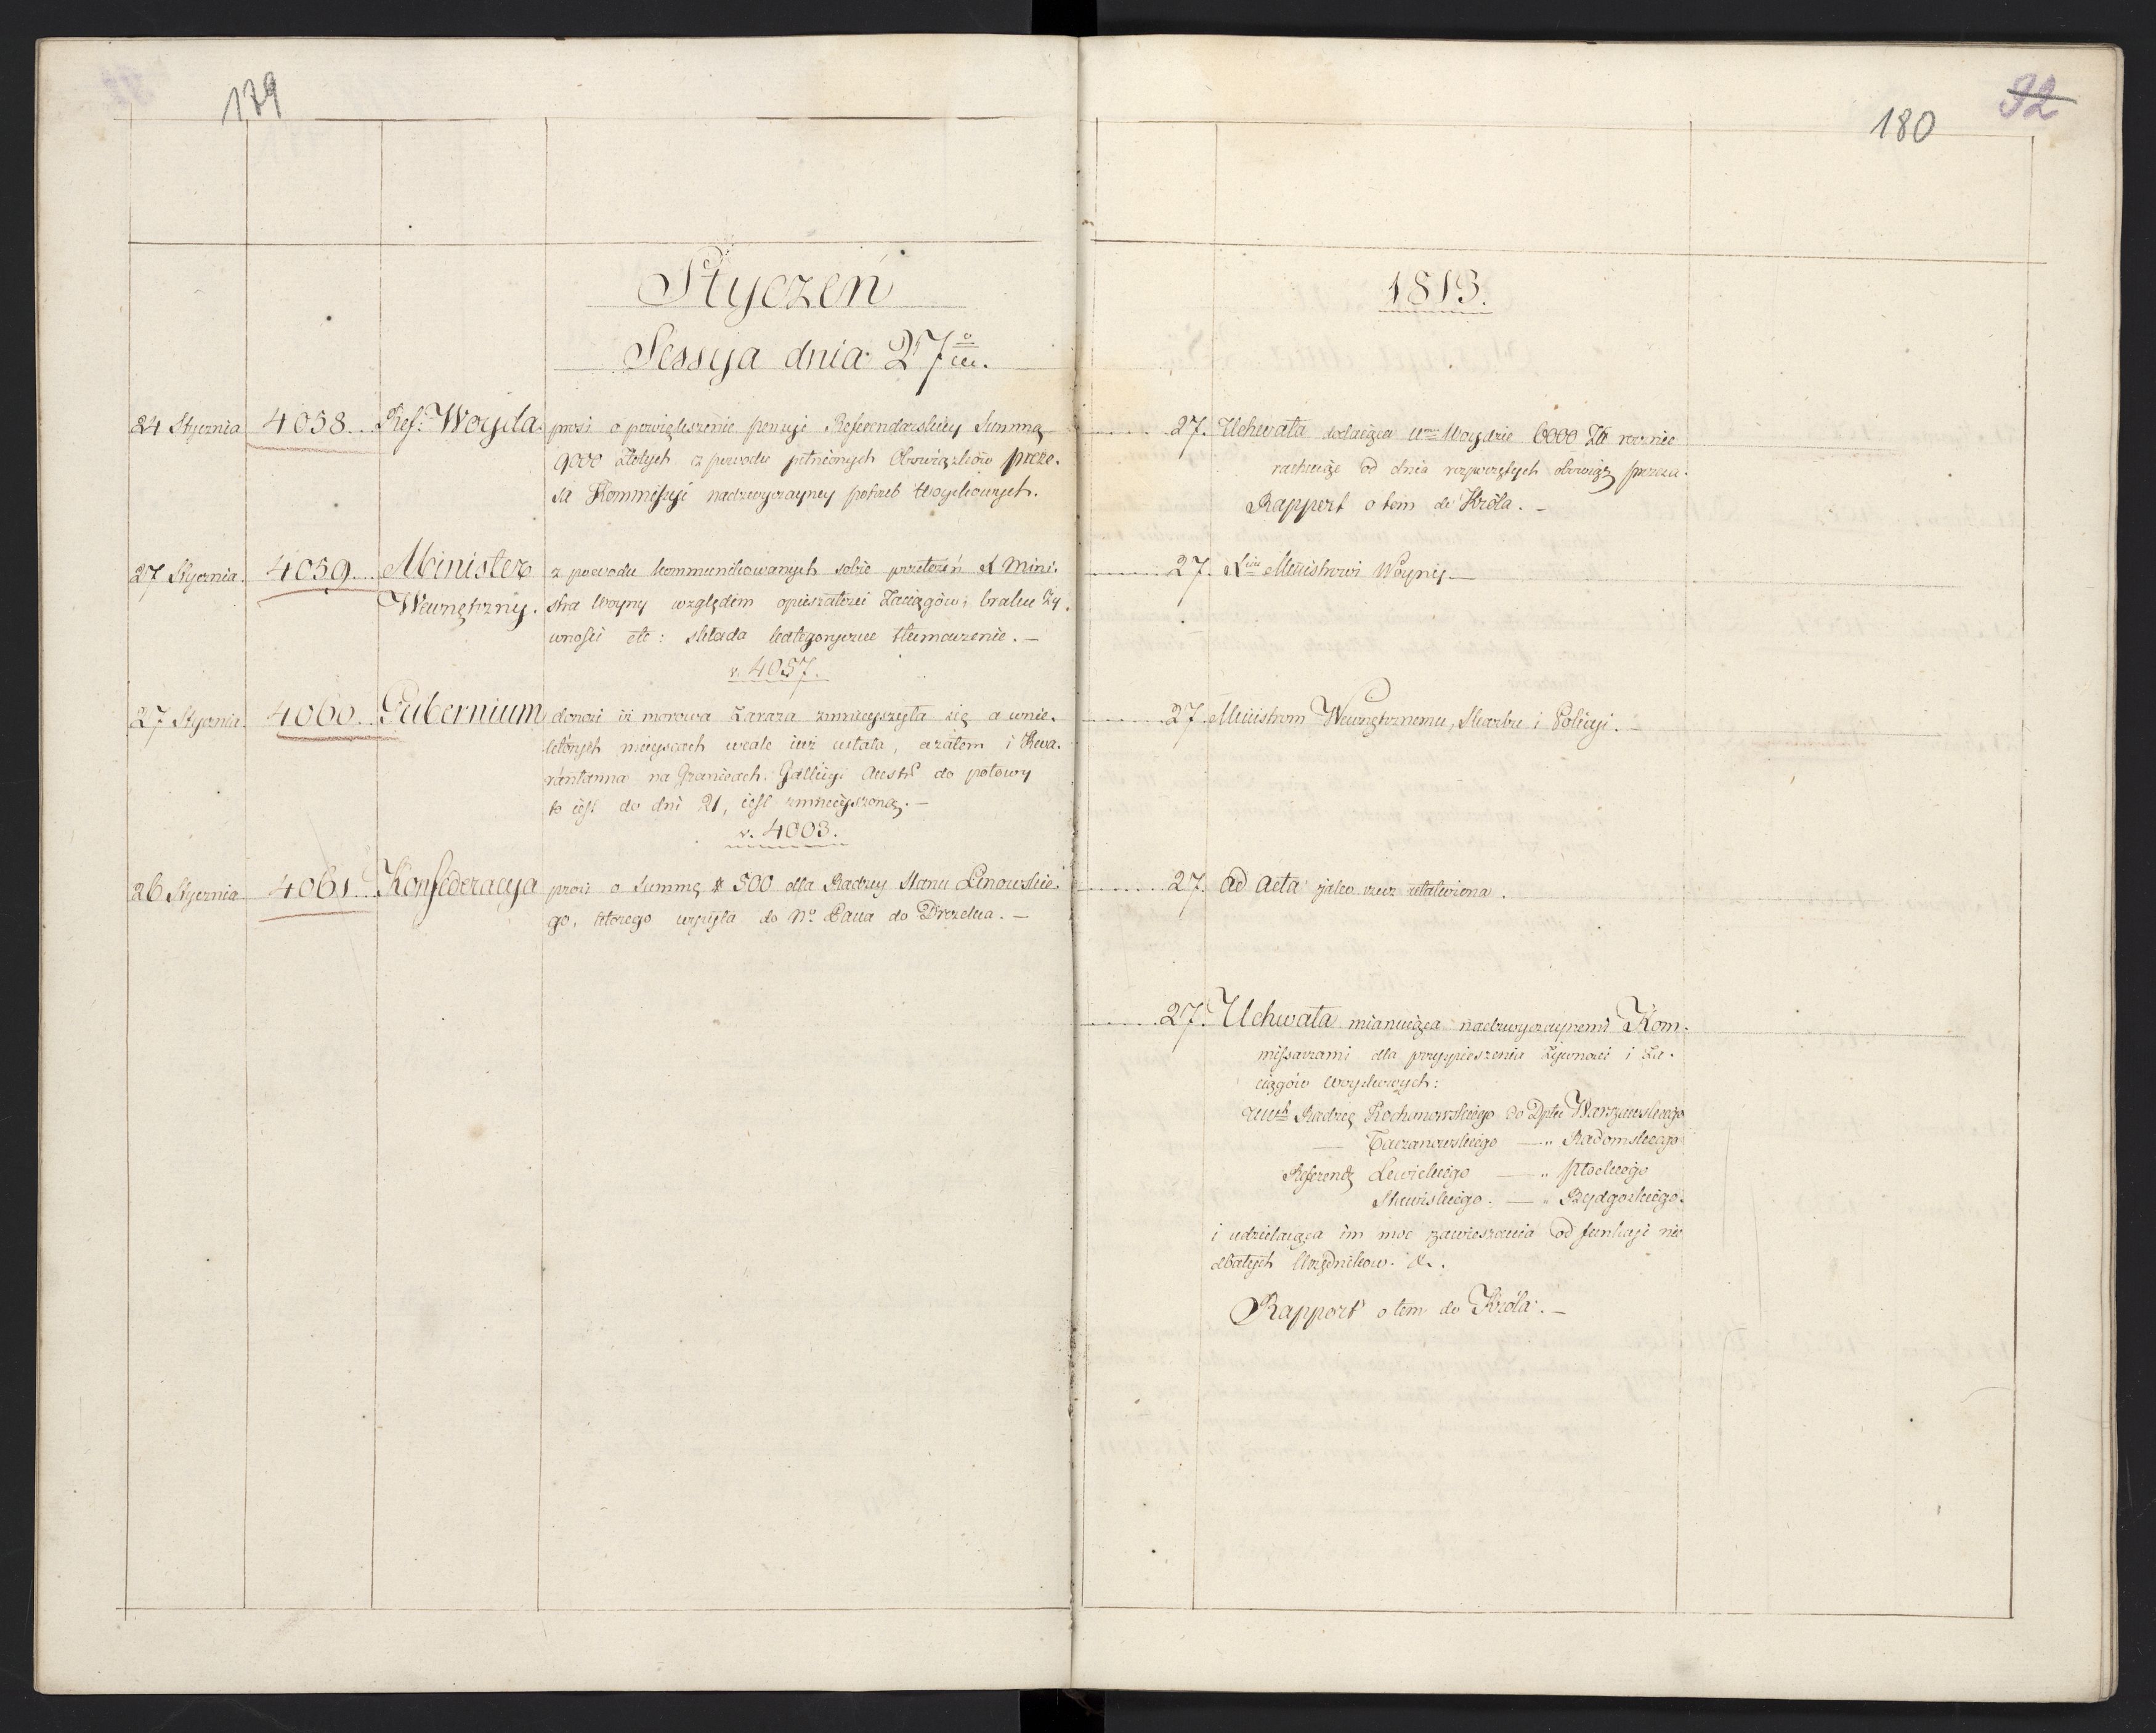 179
Styczeń
Sessyja dnia 27º
24 Stycznia 4058. Ref: Woyda. prosi o powiększenie pensyi Referendarskiey Summą
9000 złotych z powodu pełnionych Obowiązków preze-
sa Kommissyi nadzwyczayney potrzeb Woyskowych.
27 Stycznia. 4059. Minister z powodu kommunikowanych sobie przełożeń Mini-
Wewnętrzny. stra Woyny względem opieszałości Zaciągów i braku Ży-
wności etc: składa kategoryczne tłumaczenie. —
v. 4057.
27 Stycznia. 4060. Gubernium donosi iż morowa Zaraza zmnieyszyła się a w nie-
których mieyscach wcale iuż ustała, a zatem i Kwa-
rantanna na Granicach Gallicyi Austr do połowy
to iest do dni 21, iest zmnieyszoną. —
v. 4003.
26 Stycznia 4061. Konfederacya prosi o Summę # 500 dla Radzcy Stanu Linowskie-
go, którego wysyła do Nº Pana do Drezna. —
92
180
1813.
27. Uchwała dodaiąca Woydzie 6000 Zł rocznie
rachuiąc od dnia rozpoczętych obowiąz prezesa.
Rapport o tem do Króla. —
27. Ministrowi Woyny —
27 Ministrom Wewnętrznemu, Skarbu i Policyi. —
27. ad acta jako rzecz załatwiona.
27. Uchwała mianuiąca nadzwyczaynemi Kom-
missarzami dla przyspieszenia Żywności i Za-
ciągów Woyskowych:
Radzcę Kochanowskiego do Dptu Warszawskiego
— Taczanowskiego — „ Radomskiego
Referend Lewickiego — „ Płockiego
— „ Bydgoskiego.
i udzielaiąca im moc zawieszania od funkcyi nie
dbałych Urzędników. &.
Rapport o tem do Króla. —